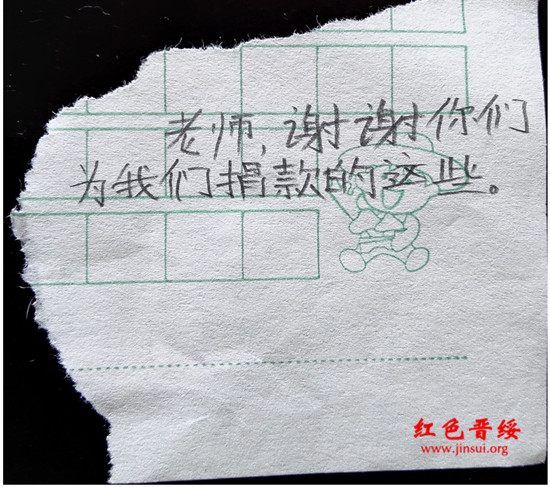 老师,谢谢你们
为我们捐款的这些。
红色晋绥
www.jinsui.org